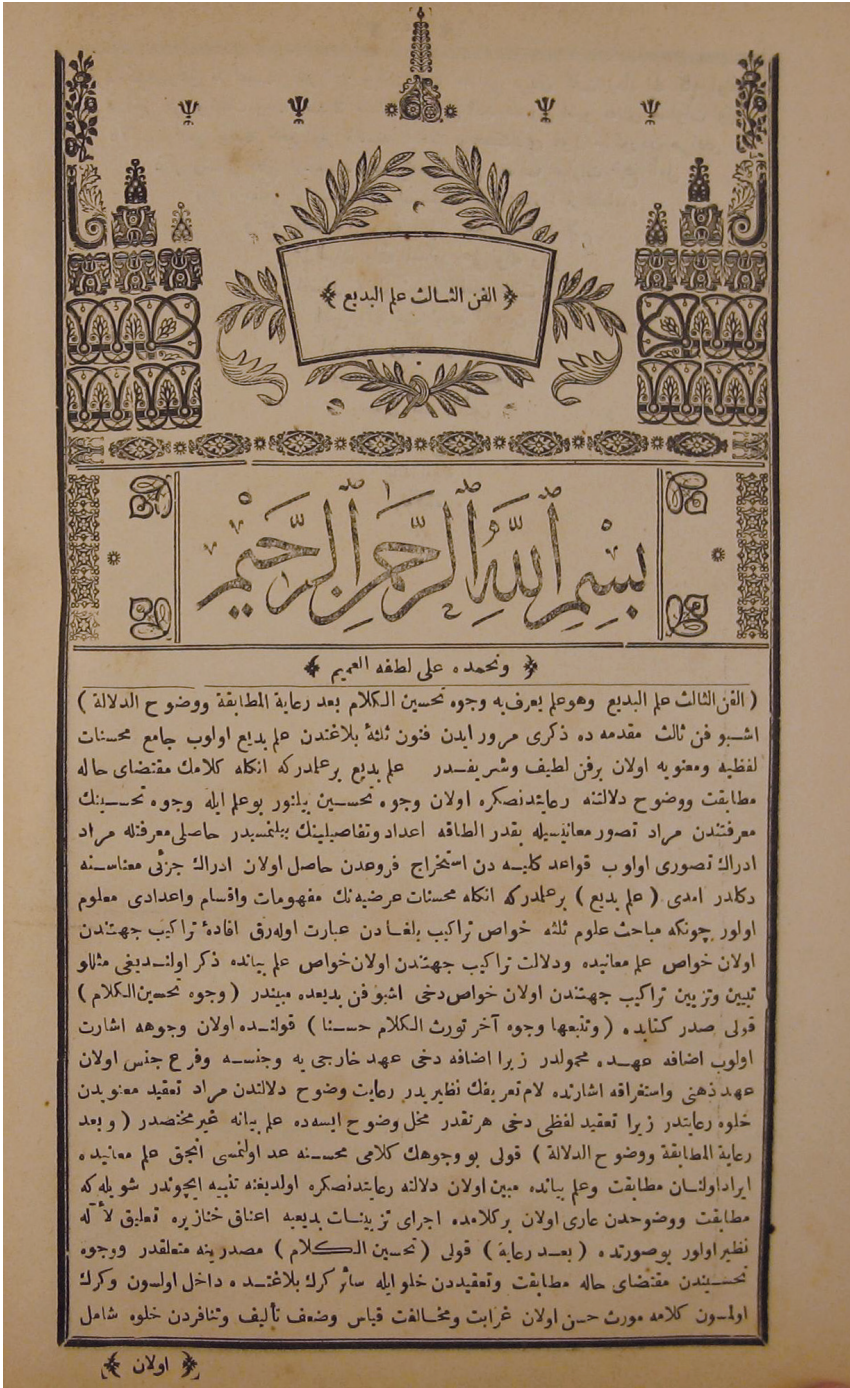 ﴿ الفن الثالث علم البديع ﴾
بسم الله الرحمن الرحيم
﴿ ونحمده على لطفه العميم ﴾
( الفن الثالث علم البديع وهو علم يعرف به وجوه تحسين الكلام بعد رعاية المطابقة ووضوح الدلالة )
اشبو فن ثالث مقدمه ده ذكرى مرور ايدن فنون ثلثهٔ بلاغتدن علم بديع اولوب جامع محسنات
لفظيه ومعنويه اولان برفن لطيف وشريفدر علم بديع برعلمدركه انكله كلامك مقتضاى حاله
مطابقت ووضوح دلالتنه رعايتدنصكره اولان وجوه تحسين بيلنور بو علم ايله وجوه تحسينك
معرفتندن مراد تصور معانيسيله بقدر الطاقه اعداد وتفاصيلينك بيلنمسيدر حاصلى معرفتله مراد
ادراك تصورى اولوب قواعد كليه دن استخراج فروعدن حاصل اولان ادراك جزئى معناسنه
دكلدر امدى ( علم بديع ) برعلمدركه انكله محسنات عرضيه نك مفهومات واقسام واعدادى معلوم
اولور چونكه مباحث علوم ثلثه خواص تراكيب بلغادن عبارت اوله رق افادهٔ تراكيب جهتندن
اولان خواص علم معانيده ودلالت تراكيب جهتندن اولان خواص علم بيانده ذكر اولنديغى مثللو
تبيين وتزيين تراكيب جهتندن اولان خواص دخى اشبو فن بديعده مبيندر ( وجوه تحسين الكلام )
قولى صدر كتابده ( وتتبعها وجوه آخر تورث الكلام حسنا ) قولنده اولان وجوهه اشارت
اولوب اضافه عهده محمولدر زيرا اضافه دخى عهد خارجى يه وجنسه وفرع جنس اولان
عهد ذهنى واستغراقه اشارتده لام تعريفك نظيريدر رعايت وضوح دلالتدن مراد تعقيد معنويدن
خلوه رعايتدر زيرا تعقيد لفظى دخى هر نقدر مخل وضوح ايسه ده علم بيانه غير مختصدر ( وبعد
رعاية المطابقة ووضوح الدلالة ) قولى بو وجوهك كلامى محسنه عد اولنمسى انجق علم معانيده
ايراد اولنان مطابقت وعلم بيانده مبين اولان دلالته رعايتدنصكره اولديغنه تنبيه ايچوندر شويله كه
مطابقت ووضوحدن عارى اولان بركلامده اجراى تزيينات بديعيه اعناق خنازيره تعليق لآله
نظير اولور بوصورتده ( بعد رعاية ) قولى ( تحسين الكلام ) مصدرينه متعلقدر ووجوه
تحسيندن مقتضاى حاله مطابقت وتعقيددن خلو ايله سائر كرك بلاغتده داخل اولسون وكرك
اولمسون كلامه مورث حسن اولان غرابت ومخالفت قياس وضعف تأليف وتنافردن خلوه شامل
﴿ اولان ﴾